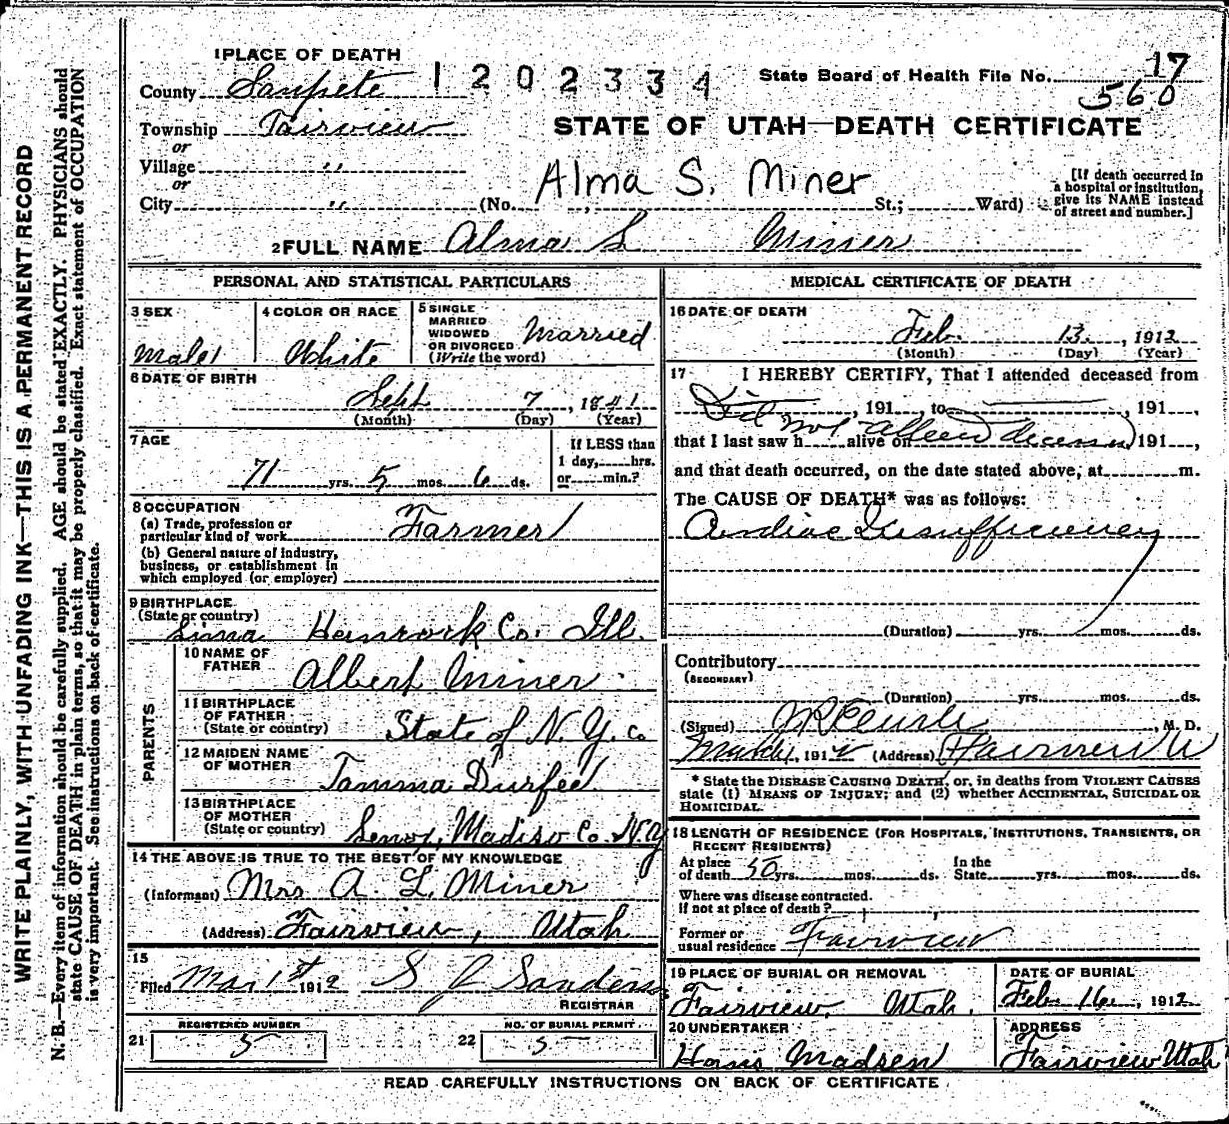 1 PLACE OF DEATH
County Sanpete
1202334
State Board of Health File No. 17
560
Township Fairview
or
Village "
or
City "
STATE OF UTAH—DEATH CERTIFICATE
Alma S. Miner
(No. , St.; Ward)
[If death occurred in
a hospital or institution,
give its NAME instead
of street and number.]
2 FULL NAME Alma S Miner
PERSONAL AND STATISTICAL PARTICULARS
3 SEX
Male
4 COLOR OR RACE
White
5 SINGLE
MARRIED
WIDOWED
OR DIVORCED
(Write the word)
Married
6 DATE OF BIRTH
Sept 7, 1841
(Month) (Day) (Year)
7 AGE
71 yrs. 5 mos. 6 ds.
If LESS than
1 day, hrs.
or min.?
8 OCCUPATION
(a) Trade, profession or
particular kind of work Farmer
(b) General nature of industry,
business, or establishment in
which employed (or employer)
9 BIRTHPLACE
(State or country)
Lima Henrock Co. Ill.
PARENTS
10 NAME OF
FATHER
Albert Miner
11 BIRTHPLACE
OF FATHER
(State or country)
State of N. Y. Co
12 MAIDEN NAME
OF MOTHER
Tamma Durfee
13 BIRTHPLACE
OF MOTHER
(State or country)
Lenox, Madiso Co. N.Y
14 THE ABOVE IS TRUE TO THE BEST OF MY KNOWLEDGE
(Informant) Mrs A. L. Miner
(Address) Fairview, Utah
15
Filed Mar 1st 1912 S J Sanders
REGISTRAR
REGISTERED NUMBER
21 5
NO. OF BURIAL PERMIT
22 5
MEDICAL CERTIFICATE OF DEATH
16 DATE OF DEATH
Feb. 13, 1912
(Month) (Day) (Year)
17 I HEREBY CERTIFY, That I attended deceased from
Did , 191 , to , 191 ,
not attend
that I last saw h alive on 191 ,
and that death occurred, on the date stated above, at m.
The CAUSE OF DEATH* was as follows:
Cardiac Insufficiency
(Duration) yrs. mos. ds.
Contributory
(SECONDARY)
(Duration) yrs. mos. ds.
(Signed) , M. D.
March 1, 1912 (Address) Fairview U
* State the DISEASE CAUSING DEATH, or, in deaths from VIOLENT CAUSES
state (1) MEANS OF INJURY; and (2) whether ACCIDENTAL, SUICIDAL OR
HOMICIDAL.
18 LENGTH OF RESIDENCE (FOR HOSPITALS, INSTITUTIONS, TRANSIENTS, OR
RECENT RESIDENTS)
At place
of death 50 yrs. mos. ds.
In the
State yrs. mos. ds.
Where was disease contracted.
If not at place of death?
Former or
usual residence Fairview
19 PLACE OF BURIAL OR REMOVAL
Fairview, Utah.
DATE OF BURIAL
Feb 16, 1912
20 UNDERTAKER
Hans Madsen
ADDRESS
Fairview Utah
READ CAREFULLY INSTRUCTIONS ON BACK OF CERTIFICATE
WRITE PLAINLY, WITH UNFADING INK—THIS IS A PERMANENT RECORD
N. B.—Every item of information should be carefully supplied. AGE should be stated EXACTLY. PHYSICIANS should
state CAUSE OF DEATH in plain terms, so that it may be properly classified. Exact statement of OCCUPATION
is very important. See instructions on back of certificate.